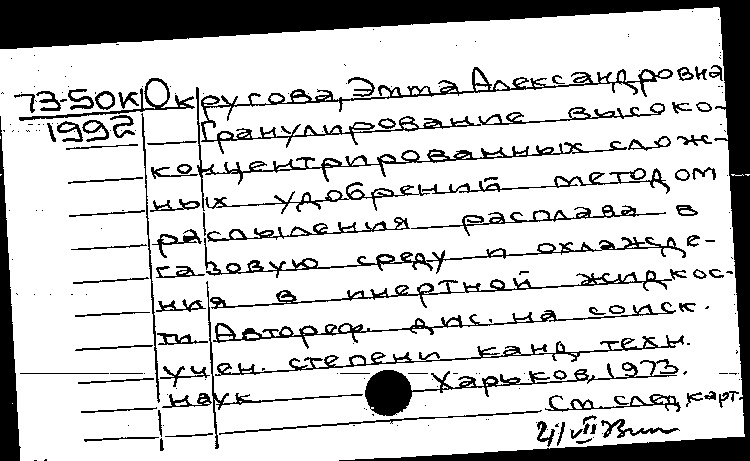 73-50к Округова, Эмма Александровна
1992 Гранулирование высоко-
концентрированных слож-
ных удобрений методом
распыления расплава в
газовую среду и охлажде-
ния в инертной жидкос-
ти. Автореф. дис. на соиск.
учен. степени канд. техн.
наук Харьков, 1973.
См. след. карт.